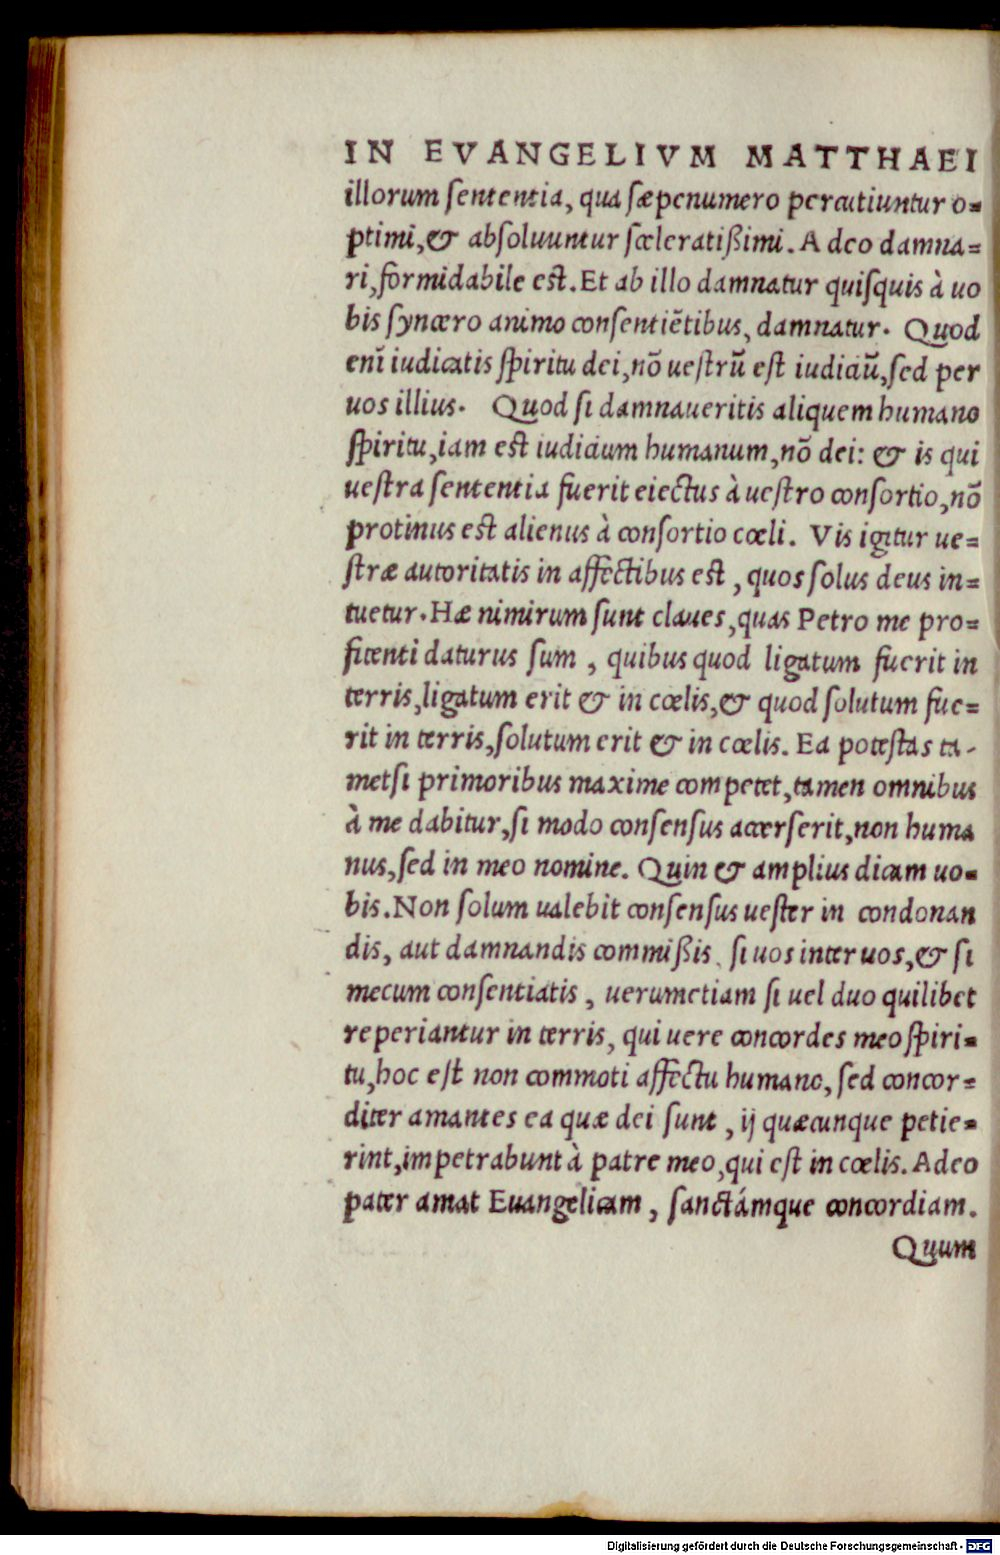 IN EVANGELIVM MATTHAEI
illorum ſententia, qua ſæpenumero percutiuntur o=
ptimi,& abſoluuntur ſceleratißimi. Adeo damna=
ri,formidabile eſt. Et ab illo damnatur quiſquis à uo
bis ſyncero animo conſentiẽtibus, damnatur. Quod
enĩ iudicatis ſpiritu dei,nõ ueſtrũ eſt iudiciũ,ſed per
uos illius. Quod ſi damnaueritis aliquem humano
ſpiritu,iam eſt iudicium humanum,nõ dei: & is qui
ueſtra ſententia fuerit eiectus à ueſtro conſortio,nõ
protinus eſt alienus à conſortio cœli. Vis igitur ue=
ſtræ autoritatis in affectibus eſt , quos ſolus deus in=
tuetur. Hæ nimirum ſunt claues,quas Petro me pro=
fitenti daturus ſum , quibus quod ligatum fuerit in
terris,ligatum erit & in cœlis,& quod ſolutum fue=
rit in terris,ſolutum erit & in cœlis. Ea poteſtas ta-
metſi primoribus maxime competet,tamen omnibus
à me dabitur,ſi modo conſenſus acceſſerit,non huma
nus,ſed in meo nomine. Quin & amplius dicam uo=
bis. Non ſolum ualebit conſenſus ueſter in condonan
dis, aut damnandis commißis, ſi uos inter uos,& ſi
mecum conſentiatis , uerumetiam ſi uel duo quilibet
reperiantur in terris, qui uere concordes meo ſpiri=
tu,hoc eſt non commoti affectu humano, ſed concor=
diter amantes ea quæ dei ſunt , ij quæcunque petie=
rint,impetrabunt à patre meo,qui eſt in cœlis. Adeo
pater amat Euangelicam , ſanctámque concordiam.
Quum
Digitalisierung gefördert durch die Deutsche Forschungsgemeinschaft - DFG